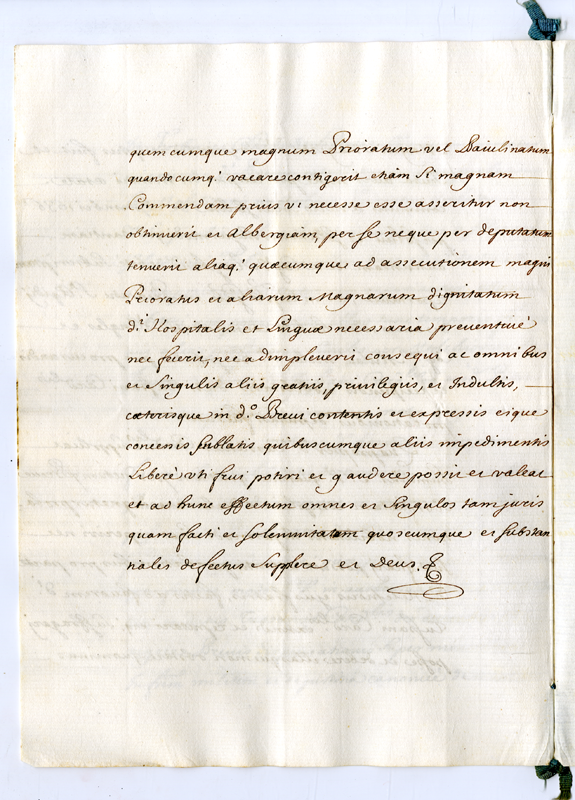 quemcumque magnum Prioratum vel Baiulinatum
quandocumq. vacare contigerit etiam si magnam
Commendam prius vt necesse esse asseritur non
obtinuerit et Albergiam, per se neque per deputatum
tenuerit aliaq. quæcumque ad assecutionem magni
Prioratus et aliarum Magnarum dignitatum
d.i Hospitalis et Linguæ necessaria preventivé
nec fecerit, nec adimpleverit consequi ac omnibus
et Singulis aliis gratiis, privilegiis, et Indultis,
cæterisque in d.o Brevi contentis et expressis eique
concessis sublatis quibuscumque aliis impedimentis
Liberè vti frui potiri et gaudere possit et valeat
et ad hunc effectum omnes et Singulos tam juris
quam facti et solemnitatum quoscumque et substan
tiales defectus Supplere et Deus.